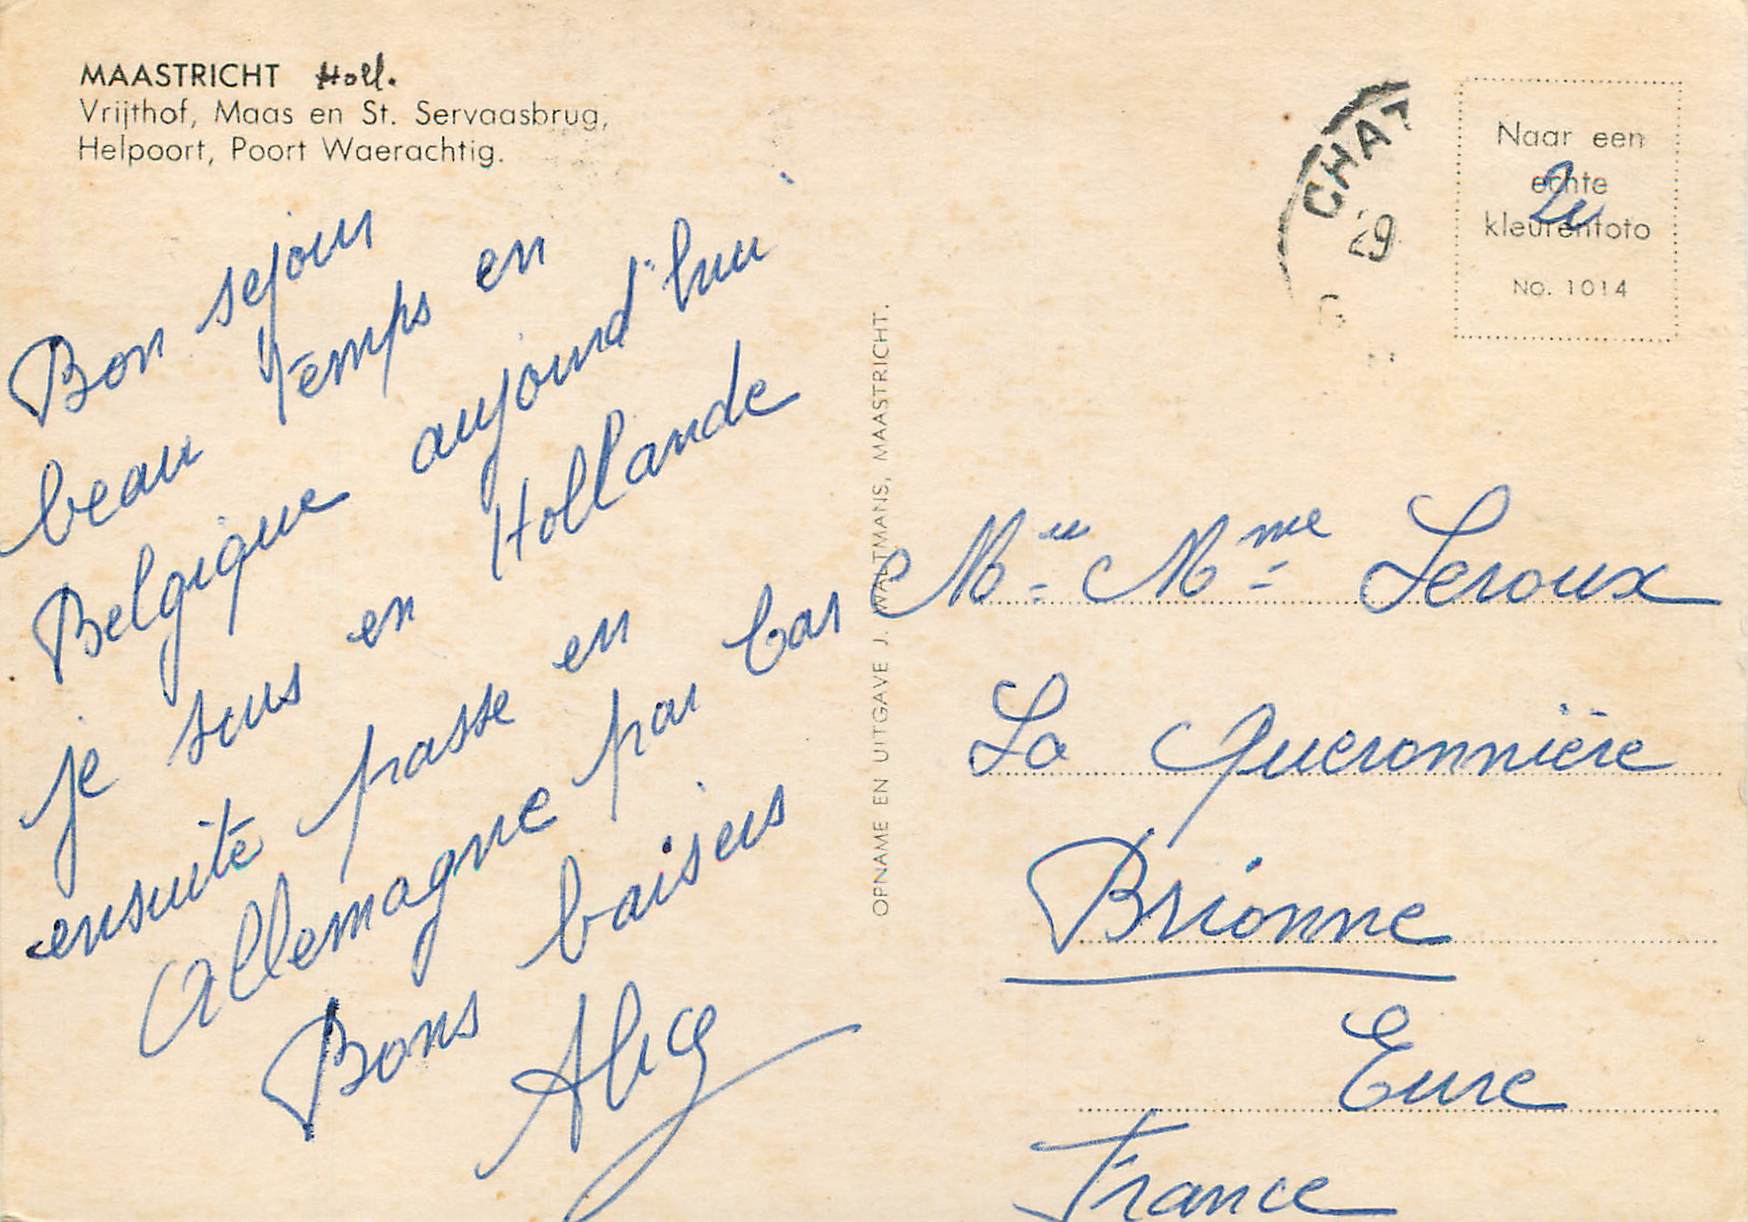 MAASTRICHT Holl.
Vrijthof, Maas en St. Servaasbrug,
Helpoort, Poort Waerachtig.
Bon sejour
beau temps en
Belgique aujourd'hui
je suis en Hollande
ensuite passe en
Allemagne par bas
Bons baisers
Alice
OPNAME EN UITGAVE J. WALTMANS, MAASTRICHT.
CHAT
29
Naar een
echte
kleurenfoto
No. 1014
Mr Mme Leroux
La Queronnière
Brionne
Eure
France